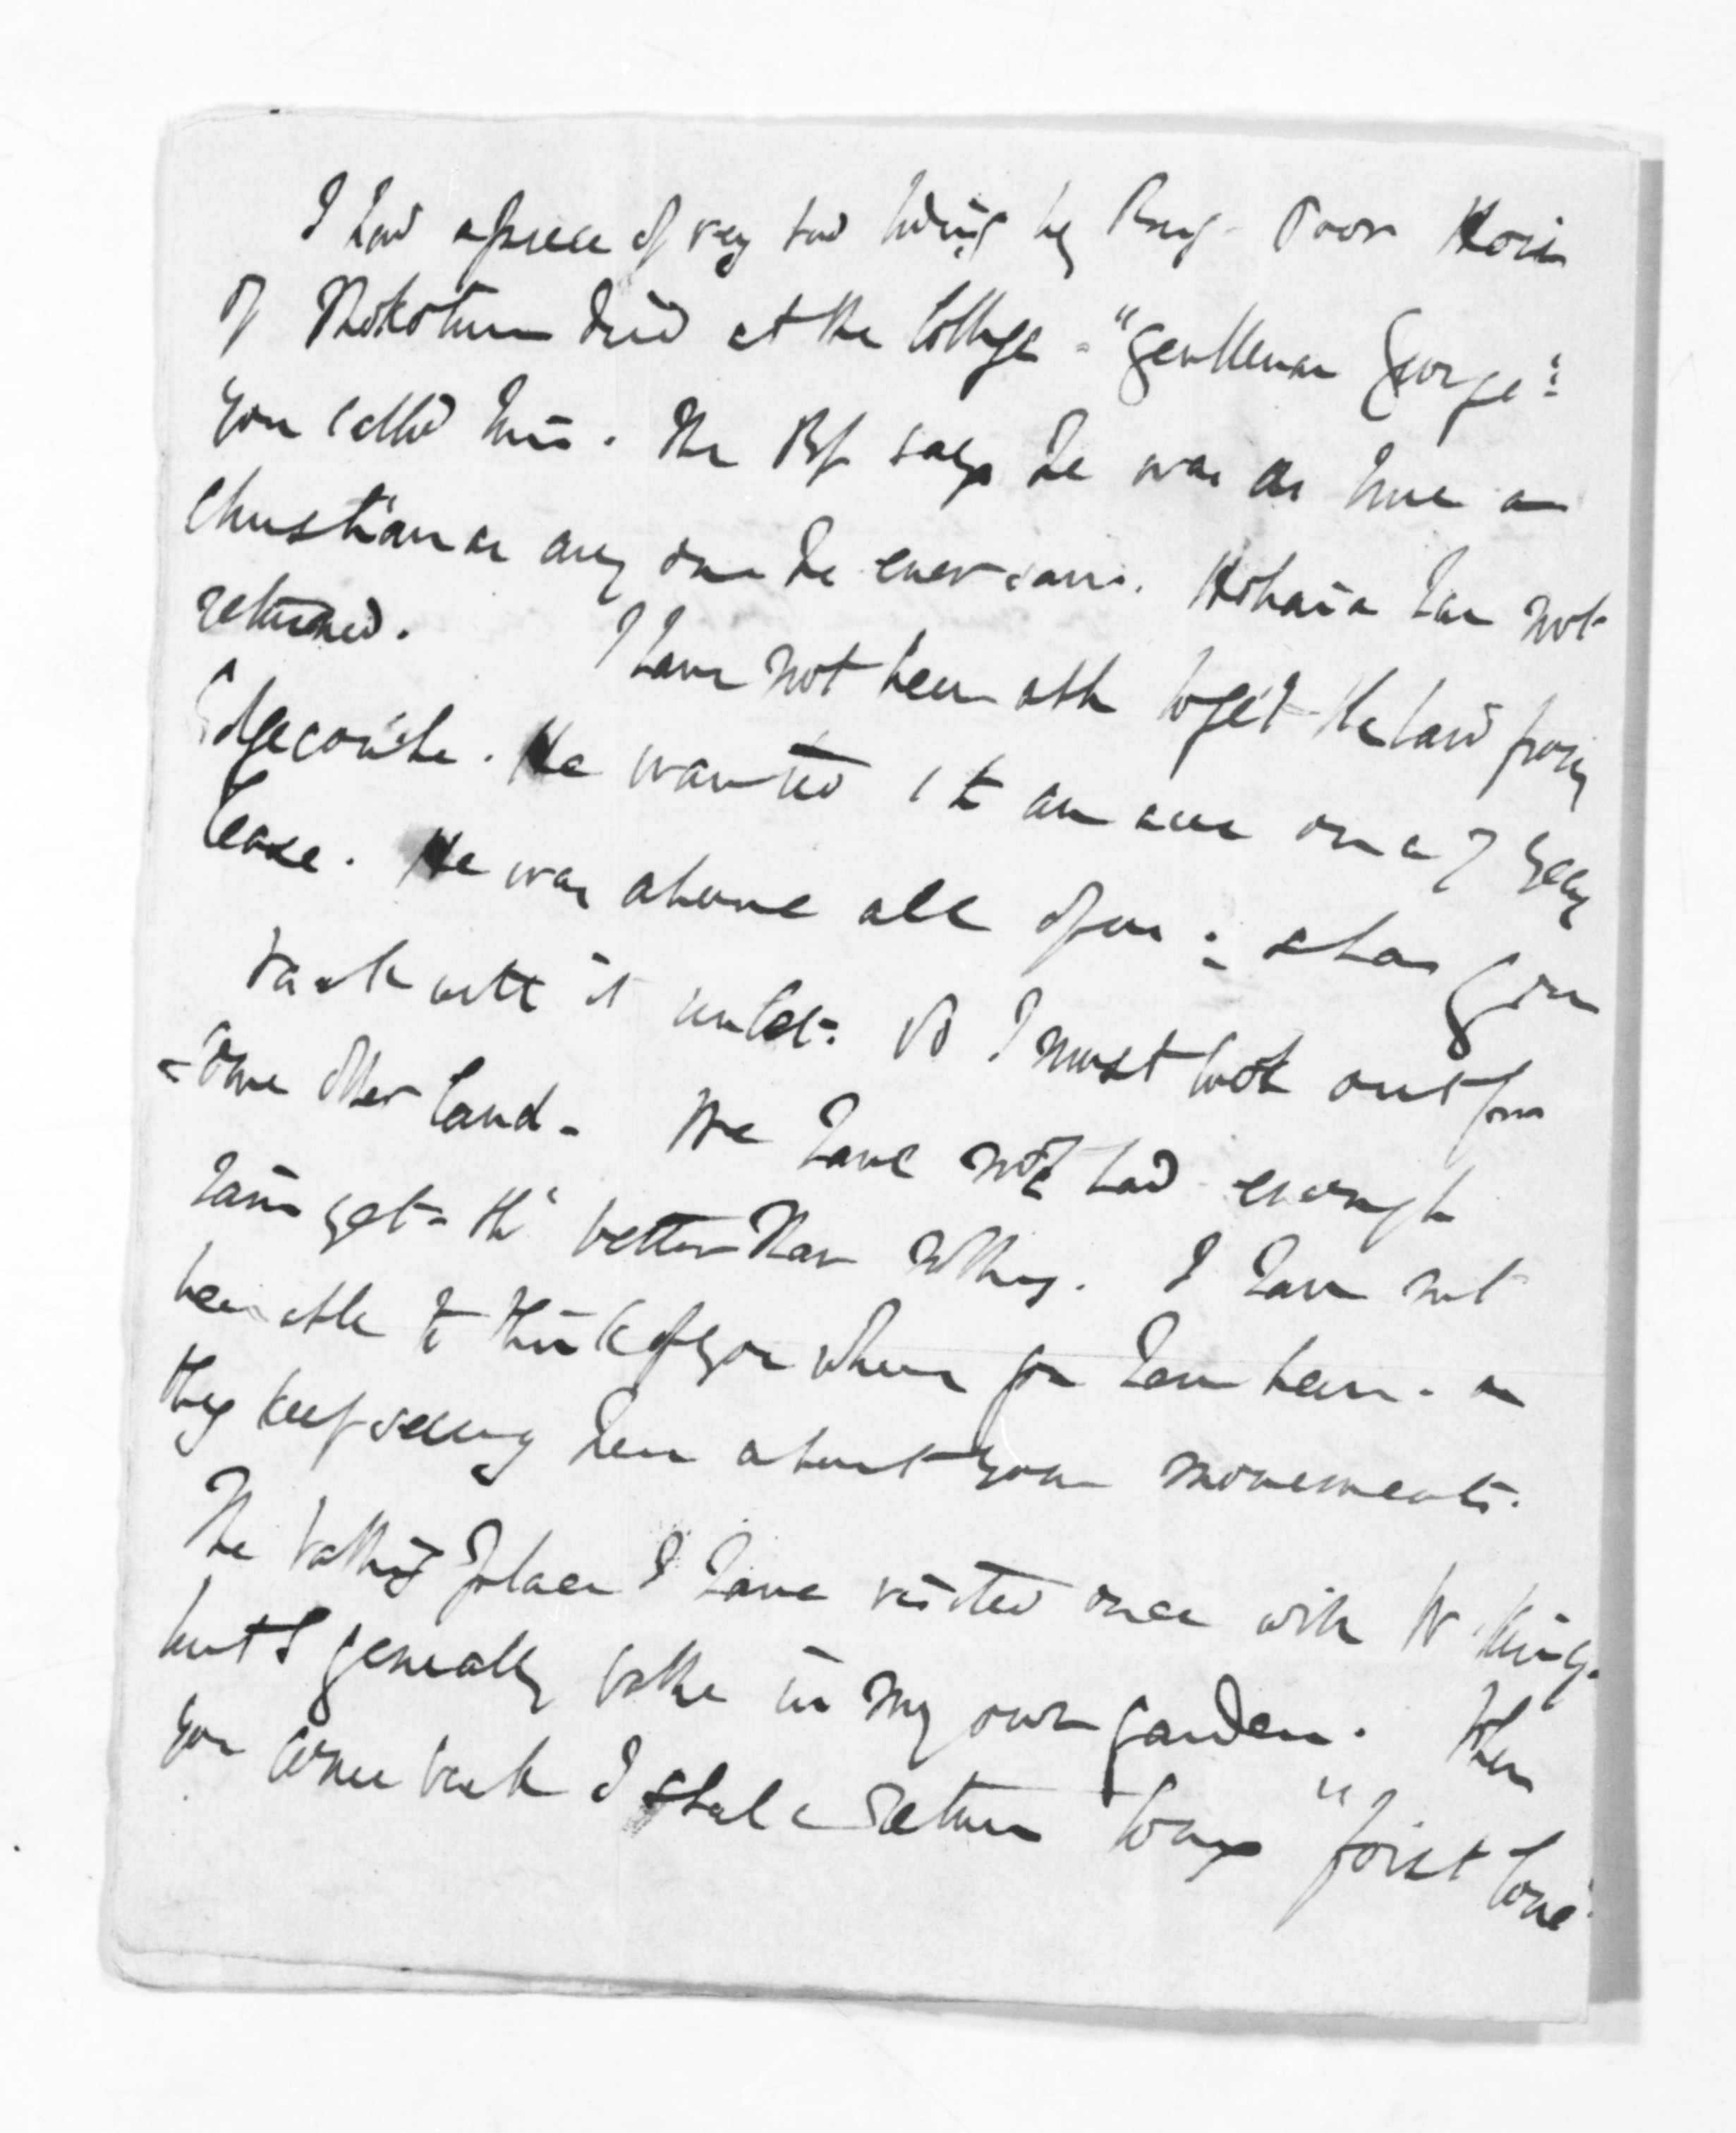 I had a piece of very sad tidings by Brig - Poor Hori
of Mokotuna died at the College - "gentleman George":
you called him. The Bp says he was as true a
Christian as any one he ever saw. Hohaia has not
returned. I have not been able to get the land from
Edgecombe. He wanted 1£ an acre on a 7 years
lease. He was above all of us: & has gone
back with it unlet. So I must look out for
some other land. We have not had enough
rain yet - tho' better than nothing. I have not
been able to think of you where you have been - as
they keep seeing here about your movements.
The bathing place I have visited once with Mr King.
but I generally bathe in my own garden. When
you come back I shall return to my "first love".